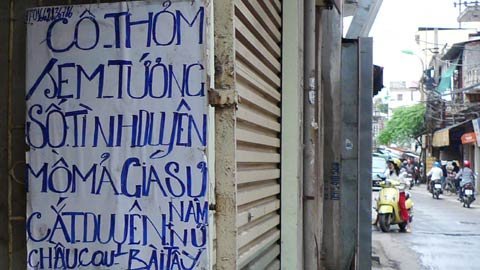 CÔ.THỎM
/SEM.TƯỚNG
SỐ.TÌNH DUYÊN
MỒ MẢ GIÁ SƯ
CẮT.DUYÊN NAM NỮ
CHẦU CAU BÀI TÂY